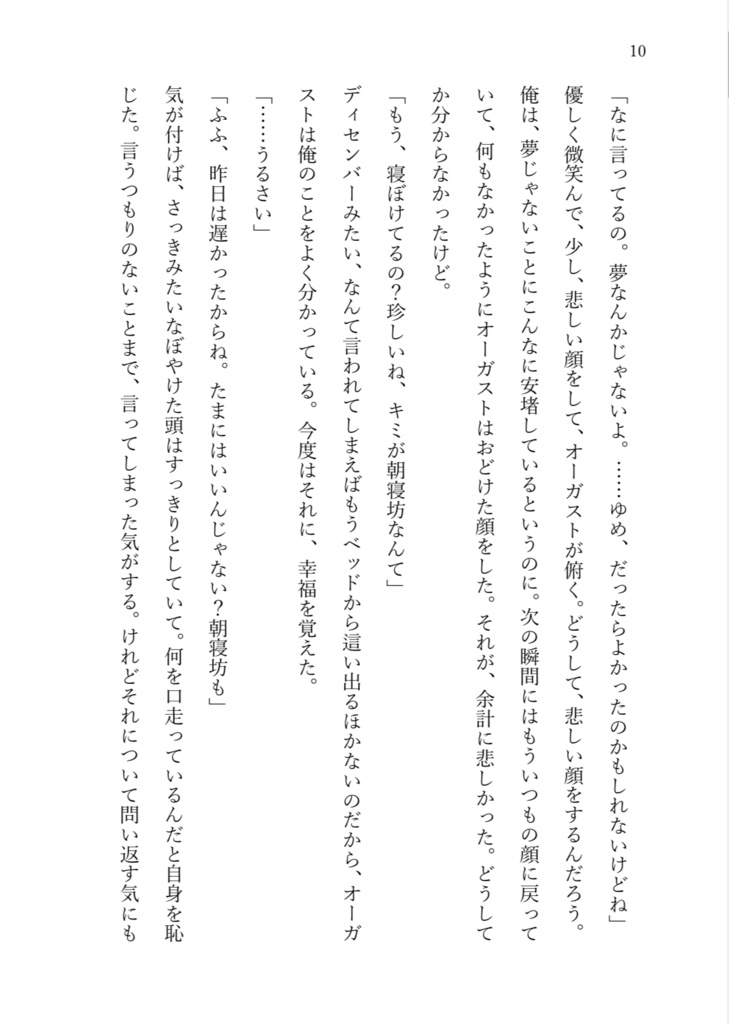 10
「なに言ってるの。夢なんかじゃないよ。……ゆめ、だったらよかったのかもしれないけどね」
優しく微笑んで、少し、悲しい顔をして、オーガストが俯く。どうして、悲しい顔をするんだろう。
俺は、夢じゃないことにこんなに安堵しているというのに。次の瞬間にはもういつもの顔に戻って
いて、何もなかったようにオーガストはおどけた顔をした。それが、余計に悲しかった。どうして
か分からなかったけど。
「もう、寝ぼけてるの？珍しいね、キミが朝寝坊なんて」
ディセンバーみたい、なんて言われてしまえばもうベッドから這い出るほかないのだから、オーガ
ストは俺のことをよく分かっている。今度はそれに、幸福を覚えた。
「……うるさい」
「ふふ、昨日は遅かったからね。たまにはいいんじゃない？朝寝坊も」
気が付けば、さっきみたいなぼやけた頭はすっきりとしていて。何を口走っているんだと自身を恥
じた。言うつもりのないことまで、言ってしまった気がする。けれどそれについて問い返す気にも